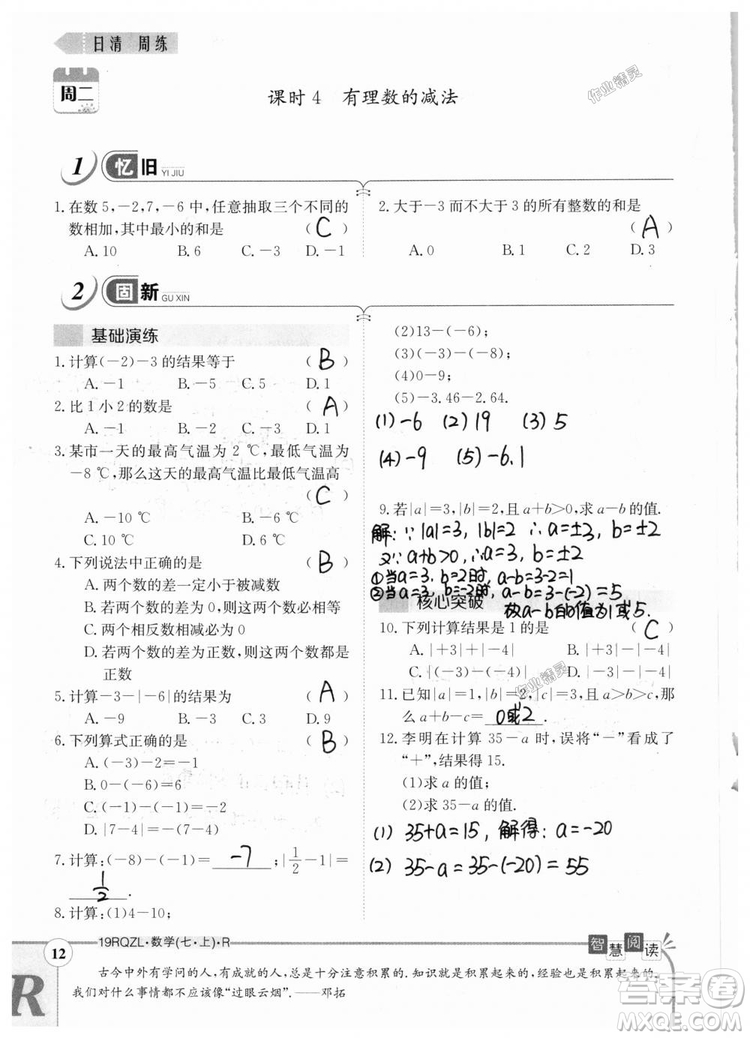 日清 周练
周二
课时4 有理数的减法
作业精灵
1 忆旧 YI JIU
1.在数5,-2,7,-6中,任意抽取三个不同的
数相加,其中最小的和是 ( C )
A.10 B.6 C.-3 D.-1
2.大于-3而不大于3的所有整数的和是
( A )
A.0 B.1 C.2 D.3
2 固新 GU XIN
基础演练
1.计算(-2)-3的结果等于 ( B )
A.-1 B.-5 C.5 D.1
2.比1小2的数是 ( A )
A.-1 B.-2 C.-3 D.1
3.某市一天的最高气温为2 ℃,最低气温为
-8 ℃,那么这天的最高气温比最低气温高
( C )
A.-10 ℃ B.-6 ℃
C.10 ℃ D.6 ℃
4.下列说法中正确的是 ( B )
A.两个数的差一定小于被减数
B.若两个数的差为0,则这两数必相等
C.两个相反数相减必为0
D.若两个数的差为正数,则此两个数都是
正数
5.计算-3-|-6|的结果为 ( A )
A.-9 B.-3 C.3 D.9
6.下列算式正确的是 ( B )
A.(-3)-2=-1
B.0-(-4)=4
C.(-1)-(-1)=-2
D.|7-4|=-(7-4)
7.计算:(-8)-(-1)= -7 ;|1/2-1|=
1/2 .
8.计算:(1)4-10;
(2)13-(-6);
(3)(-3)-(-8);
(4)0-9;
(5)-3.46-2.64.
(1)-6 (2)19 (3)5
(4)-9 (5)-6.1
9.若|a|=3,|b|=2,且a+b>0,求a-b的值.
解:∵|a|=3,|b|=2 ∴a=±3,b=±2
又∵a+b>0,∴a=3,b=±2
①当a=3,b=2时,a-b=3-2=1
②当a=3,b=-2时,a-b=3-(-2)=5
故a-b的值为1或5.
核心突破
10.下列计算结果是1的是 ( C )
A.|+3|+|-4| B.|-3|-|-4|
C.|(-3)-(-4)| D.|+3|-|-4|
作业精灵
11.已知|a|=1,|b|=2,|c|=3,且a>b>c,那
么a+b-c= 0或2 .
12.李明在计算35-a时,误将“-”看成了
“+”,结果得15.
(1)求a的值;
(2)求35-a的值.
(1) 35+a=15,解得:a=-20
(2) 35-a=35-(-20)=55
12 19RQZL·数学(七·上)·R
智慧阅读
古今中外有学问的人,有成就的人,总是十分注意积累的.知识就是积累起来的,经验也是积累起来的.
我们对什么事情都不应该像“过眼云烟”.——邓拓
R